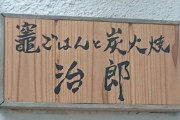 竈ごはんと炭火焼
治郎